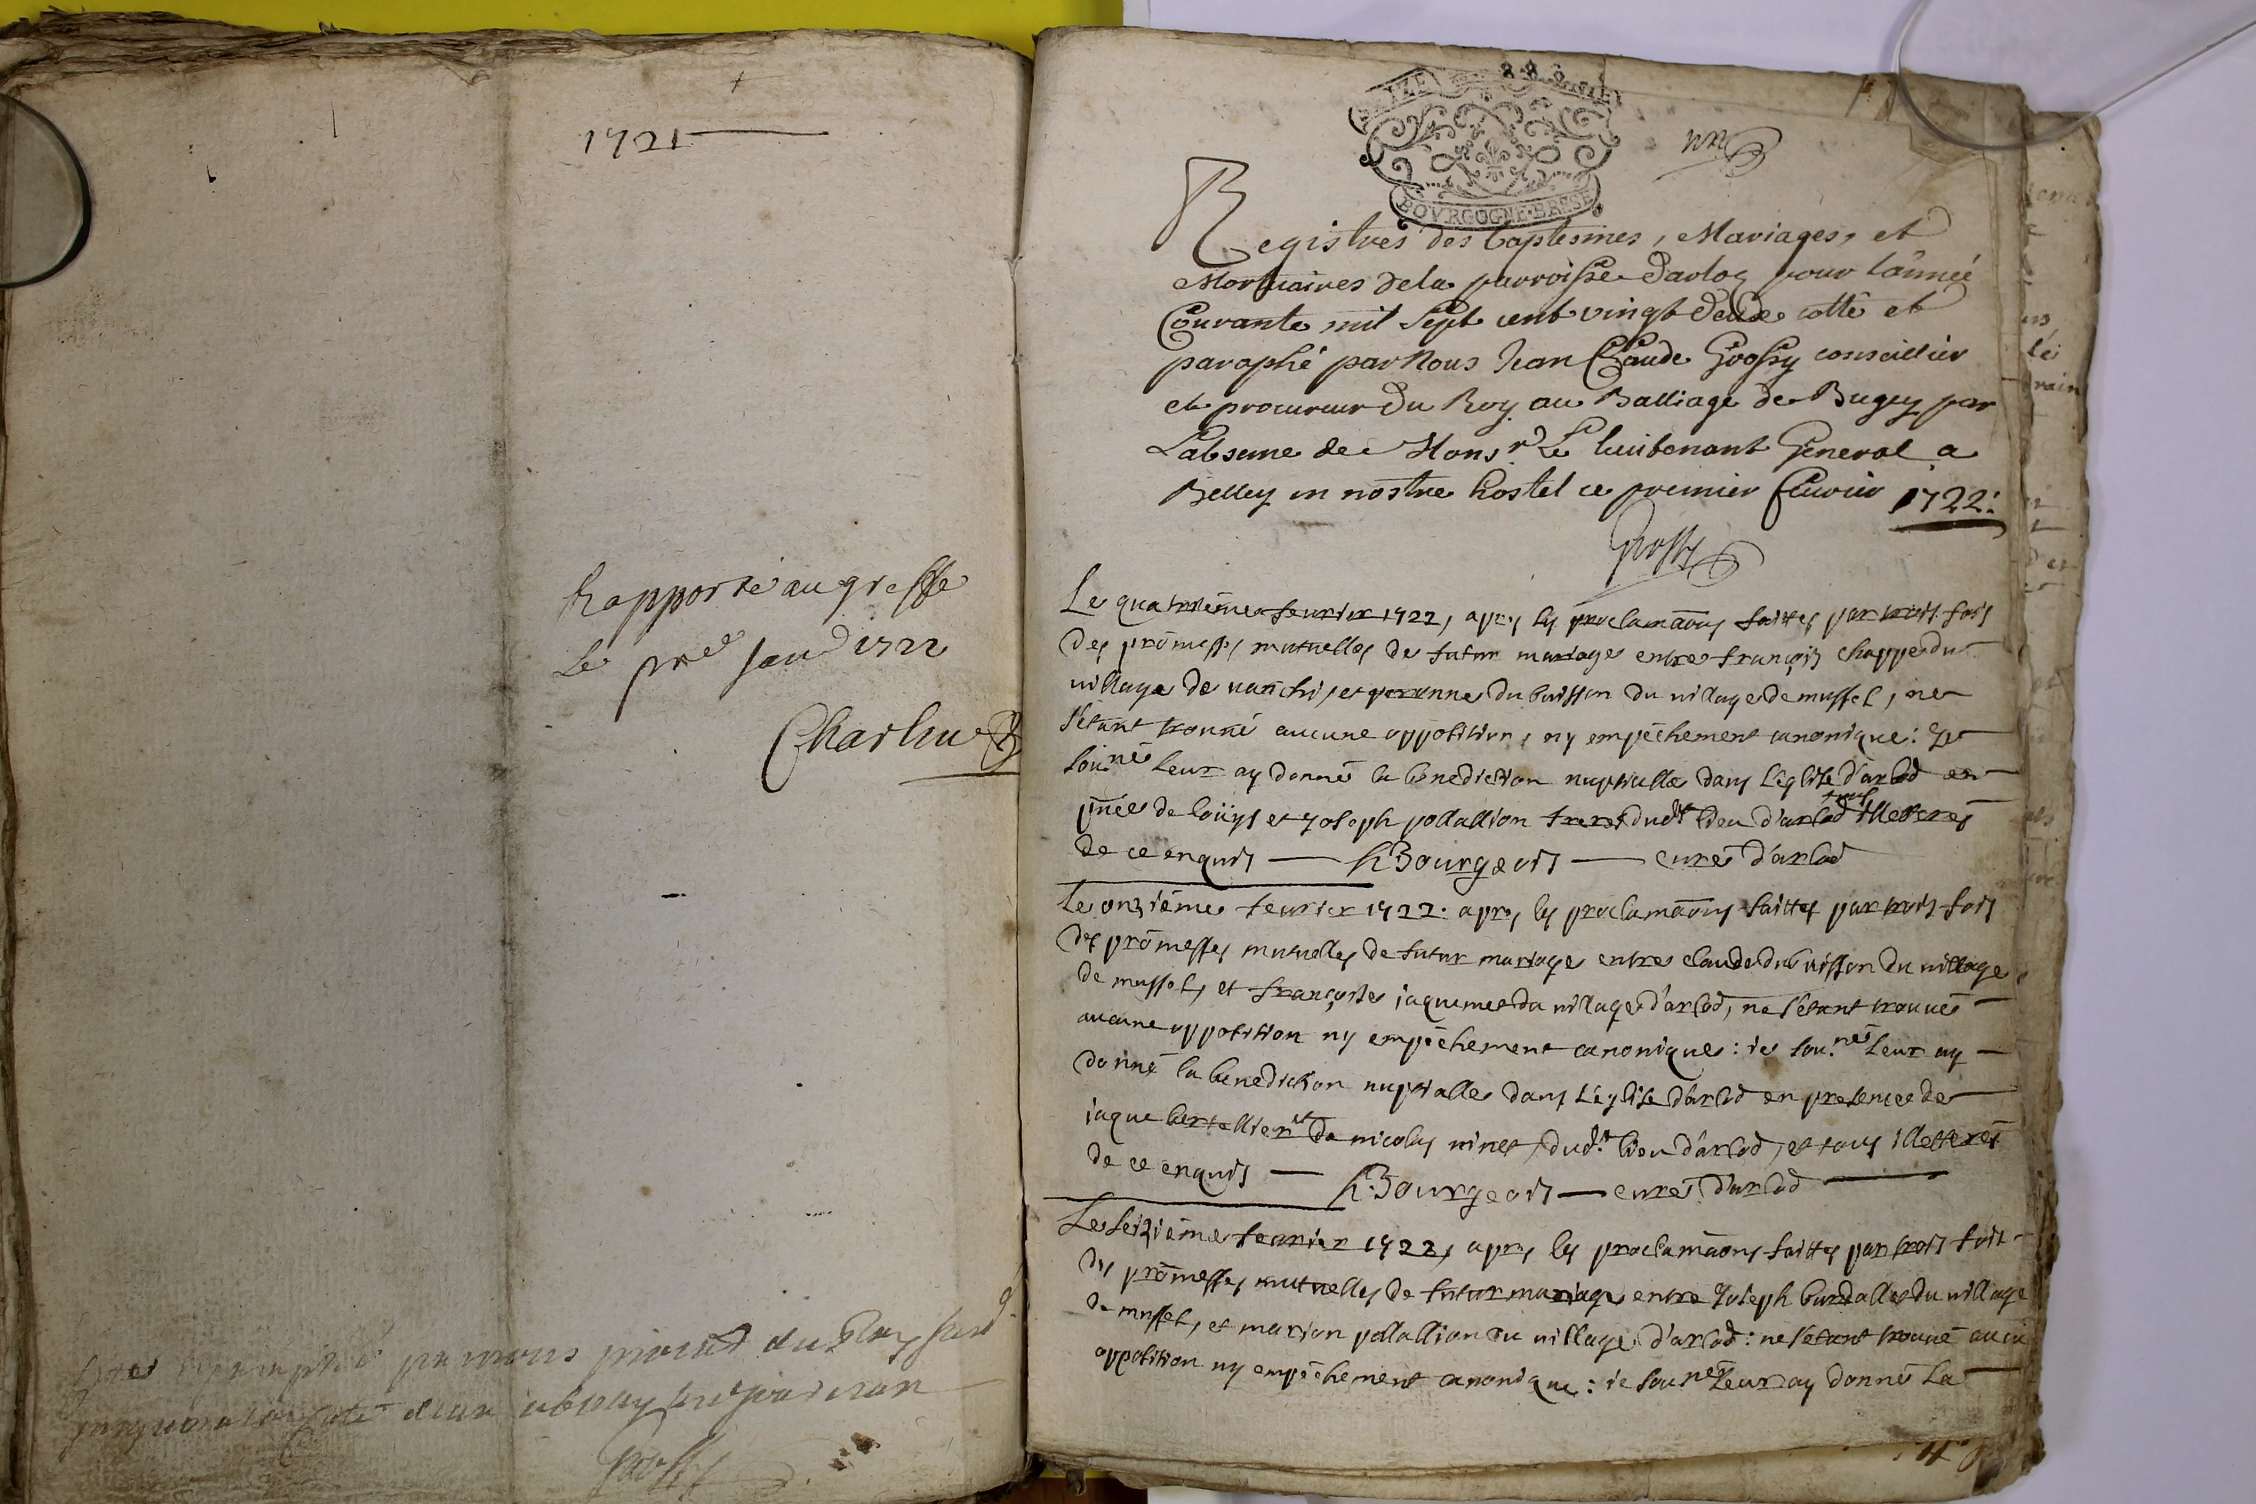 1721
Rapporté au greffe
Le pre Janv 1722
par nous du Roy
Grossy
BOVRGOGNE·BRESSE
Registres des baptesmes, Mariages, et
Mortuaires de la parroisse darlog pour lannée
Courante mil sept cent vingt deux cotté et
paraphé par Nous Jean Claude Grossy conseillier
et procureur du Roy au Balliage de Bugey par
Labsence de Monsr Le lieutenant General a
Belley en nostre hostel ce premier feuvrier 1722.
Grossy
Le quatrième feurier 1722, apres les proclamaons faittes par trois fois
des promesses mutuelles de futur mariage entre françois chappe du
village de vanchi, et peronne du buisson du village de mussel, ne
s'étant trouué aucune opposition, ny empêchement canonique: Je
sou.né leur ay donné la benediction nuptialle dans l'église d'arlod en
pnce de loüys et Joseph pollallion freres dud.t lieu d'arlod tous illetterés
de ce enquis — h Bourgeois — curé d'arlod
Le onzième feurier 1722. apres les proclamaons faittes par trois fois
des promesses mutuelles de futur mariage entre claude dubuisson du village
de mussel, et françoise jaquemet du village d'arlod, ne s'étant trouué
aucune opposition ny empêchement canonique: je sou.né leur ay
donné la benediction nuptialle dans l'église d'arlod en presence de
jaque bertellier et de nicolas vinet, dud.t lieu d'arlod, et tous illetterés
de ce enquis — h. Bourgeois — curé d'arlod
Le seizième feurier 1722, apres les proclamaons faittes par trois fois
des promesses mutuelles de futur mariage entre Joseph burdallet du village
de mussel, et marion pollallion du village d'arlod: ne s'étant trouué aucune
opposition ny empêchement canonique: je sou.né leur ay donné la